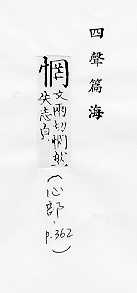 四聲篇海
惘
文兩切惘然
失志皃
(心部, p.362)